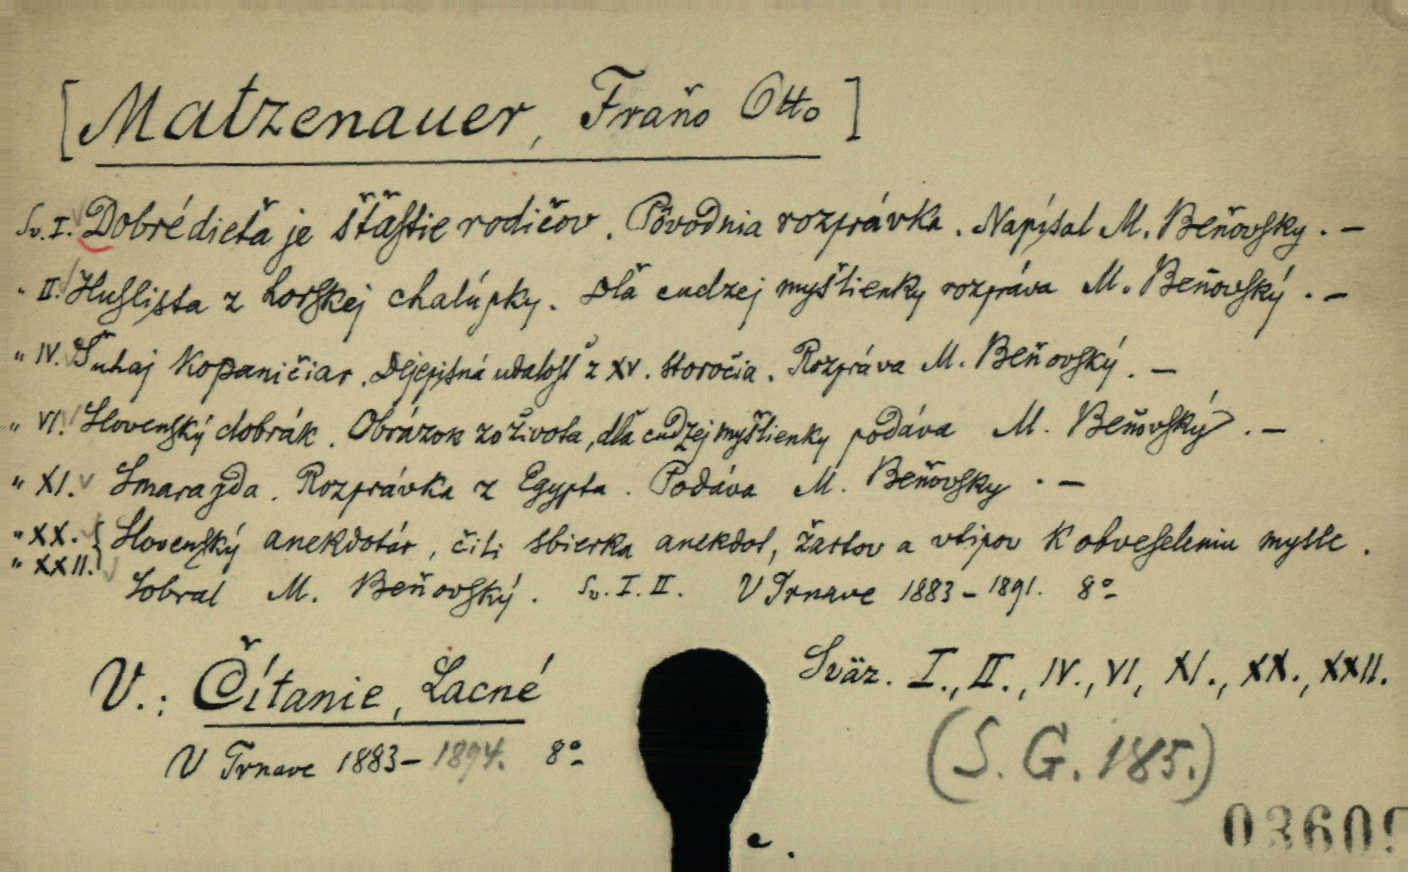 [Matzenauer, Fraňo Otto]
Sv. I. Dobré dieťa je šťastie rodičov. Pôvodnia rozprávka. Napísal M. Beňovsky. —
" II. Huslista z horskej chalúpky. Dľa cudzej myšlienky rozpráva M. Beňovský. —
" IV. Šuhaj Kopaničiar. Dejepisná udalosť z XV. storočia. Rozpráva M. Beňovský. —
" VI. Slovenský dobrák. Obrázok zo života, dľa cudzej myšlienky podáva M. Beňovský. —
" XI. Smaragda. Rozprávka z Egypta. Podáva M. Beňovsky. —
" XX. Slovenský anekdotár, čili sbierka anekdot, žartov a vtipov k obveseleniu mysle.
" XXII. Sobral M. Beňovský. Sv. I. II. V Trnave 1883-1891. 8°
V.: Čítanie, Lacné
Sväz. I., II., IV., VI, XI., XX., XXII.
V Trnave 1883-1894. 8°
(S. G. 185.)
03609